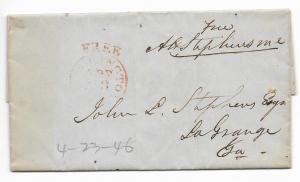 Free
A H Stephens m c
FREE
John L. Stephens Esqr
La Grange
Ga
4-23-46